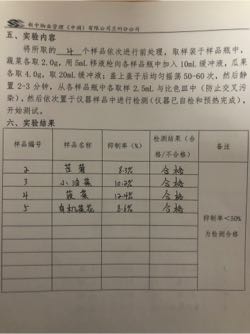 物业管理（中国）有限公司兰州分公司
五、实验内容
将所取的 4 个样品依次进行前处理，取样装于样品瓶中，
蔬菜各取2.0g，用5mL移液枪向各样品瓶中加入10mL缓冲液，瓜果
各取4.0g，取20mL缓冲液；盖上盖子后均匀摇荡50-60次，然后静
置2-3分钟，从各样品瓶中各取2.5mL与比色皿中（防止交叉污
染），然后依次置于仪器中进行检测（仪器已自检和预热完成），
开始测试。
六、实验结果
样品编号 样品名称 抑制率（%） 检测结果（合格/不合格） 备注
2 8.3% 合格
3 小油菜 10.2% 合格
4 菠菜 12.4% 合格
5 有机菜花 8.6% 合格
抑制率<50%
为检测合格